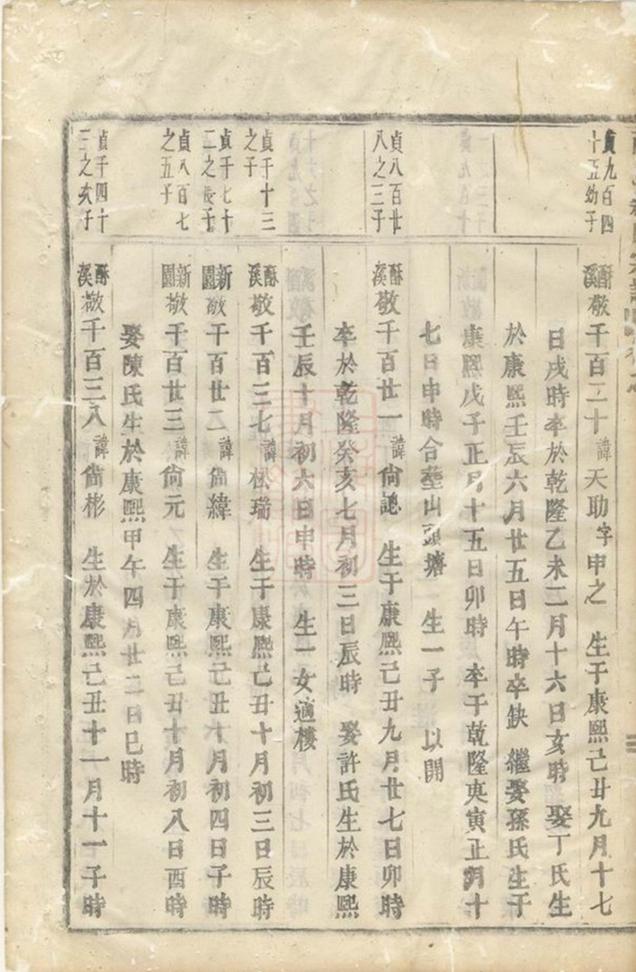 貞九百四十五幼子
酥溪敬千百二十諱天助字申之 生于康熙己丑九月十七
日戌時卒於乾隆乙未二月十六日亥時 娶丁氏生
於康熙壬辰六月廿五日午時卒缺 繼娶孫氏生于
康熙戊子正月十五日卯時 卒于乾隆庚寅正月十
七日申時合塟山頭塘 生一子 以開
貞八百廿八之三子
酥溪敬千百廿一諱尙認 生于康熙己丑九月廿七日卯時
卒於乾隆癸亥七月初三日辰時 娶許氏生於康熙
壬辰十月初六日申時 生一女適樓
貞千十三之子
酥溪敬千百三七諱松瑞 生于康熙己丑十月初三日辰時
貞千七十二之長子
新園敬千百廿二諱尙緯 生于康熙己丑十月初四日子時
貞八百七之五子
新園敬千百廿三諱尙元 生于康熙己丑十月初八日酉時
娶陳氏生於康熙甲午四月廿二日巳時
貞千四十三之次子
酥溪敬千百三八諱尙彬 生於康熙己丑十一月十一子時